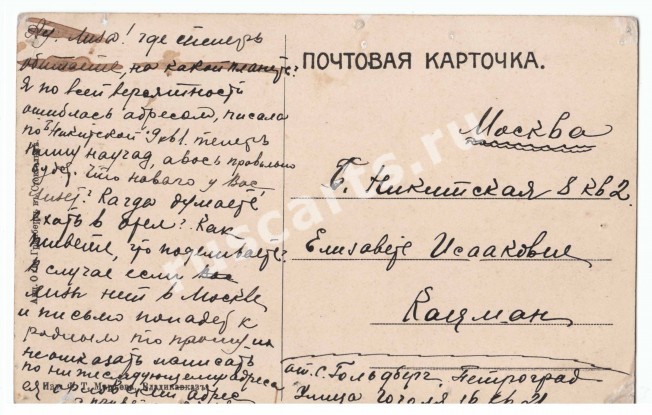 Ау. Лиза! где теперь
обитаете, на какой планете?
Я по всей вероятности
ошиблась адресом, писала
по Б. Никитской 9 кв 1. теперь
пишу наугад, авось правильно
будет. Что нового у Вас
Лизет? Когда думаете
ехать в Орел? Как
живете, что поделываете?
в случае если
Лизы нет в Москве
и письмо попадет к
родным то прошу их
не отказать написать
по нижеследующему адресу
ея орловский адрес
ПОЧТОВАЯ КАРТОЧКА.
Москва
Б. Никитская 8 кв 2.
Елизавете Исааковне
Кацман
от. С. Гольдберг, Петроград
Улица Гоголя 16 кв 21
Владикавказъ
ruscarts.ru